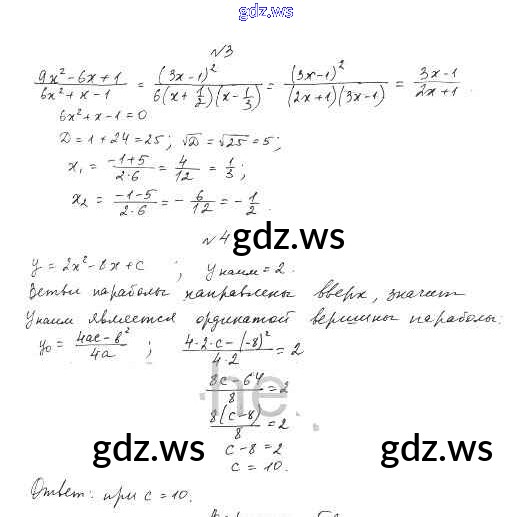 gdz.ws
№3
(9x²-6x+1)/(6x²+x-1) = (3x-1)²/(6(x+1/2)(x-1/3)) = (3x-1)²/((2x+1)(3x-1)) = (3x-1)/(2x+1).
6x²+x-1=0
D=1+24=25; √D=√25=5;
x₁=(-1+5)/(2·6)=4/12=1/3;
x₂=(-1-5)/(2·6)=-6/12=-1/2.
№4
gdz.ws
y=2x²-8x+c; yнаим=2.
Ветви параболы направлены вверх, значит
yнаим является ординатой вершины параболы:
y₀=(4ac-b²)/4a; (4·2·c-(-8)²)/(4·2)=2
(8c-64)/8=2
8(c-8)/8=2
c-8=2
c=10.
gdz.ws gdz.ws
Ответ: при c=10.